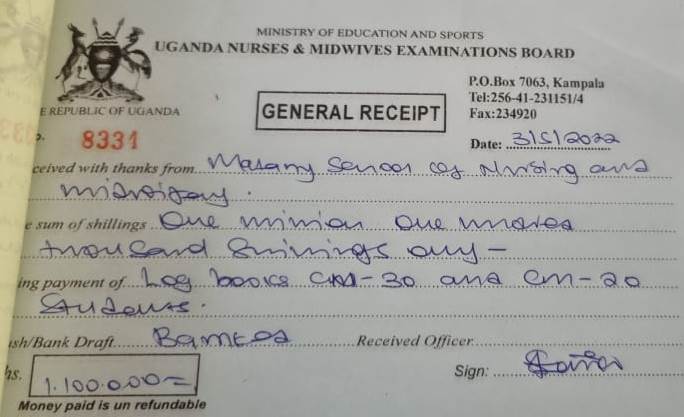 MINISTRY OF EDUCATION AND SPORTS
UGANDA NURSES & MIDWIVES EXAMINATIONS BOARD
P.O.Box 7063, Kampala
Tel:256-41-231151/4
Fax:234920
E REPUBLIC OF UGANDA
GENERAL RECEIPT
o. 8331
Date: 3/5/2022
ceived with thanks from School of Nursing and
midwifery.
e sum of shillings One million One hundred
thousand Shillings only -
ing payment of Log books CM-30 and Cm-20
Students.
ash/Bank Draft Banked Received Officer
hs. 1.100.000= Sign:
Money paid is un refundable